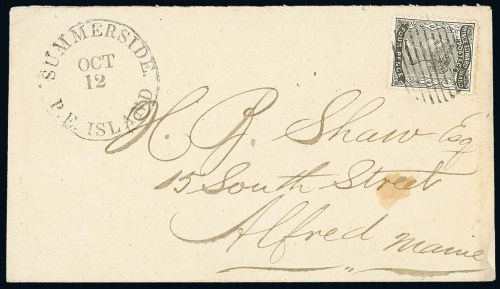 SUMMERSIDE.
OCT
12
P. E. ISLAND
H. B. Shaw Esq
15 South Street
Alfred Maine